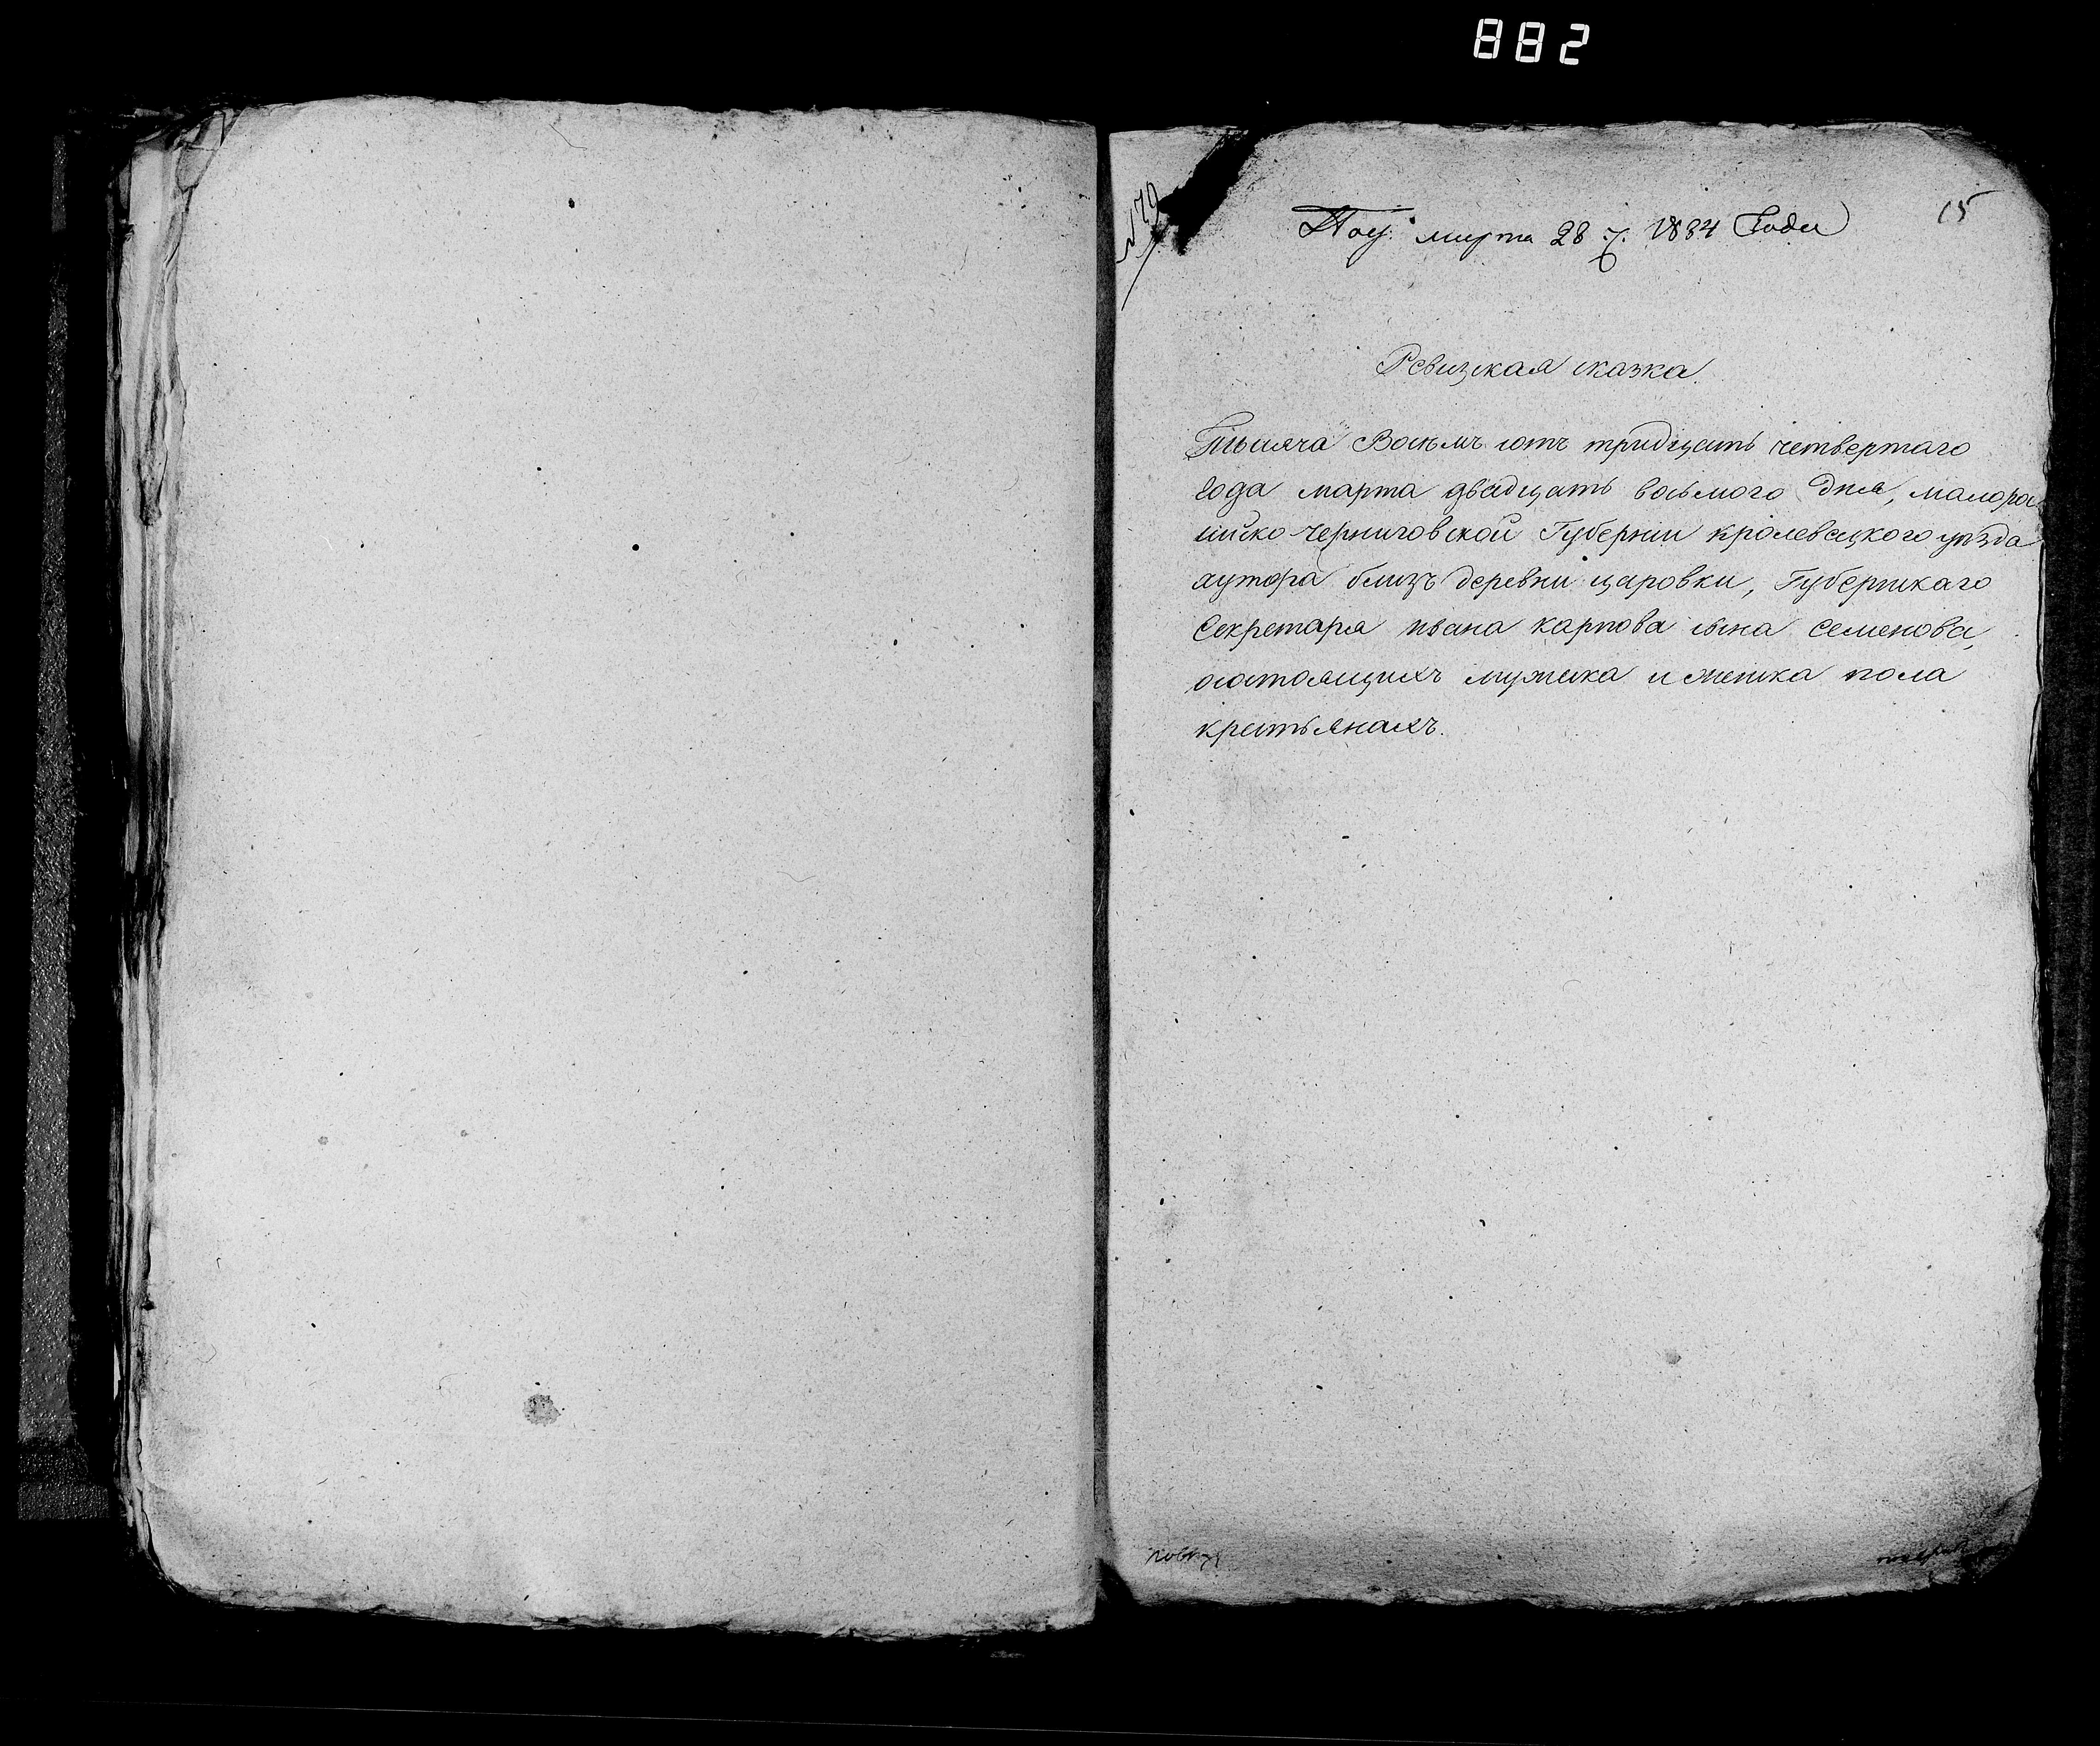 882
15
Пол. марта 28 д. 1834 Года
Ревизкая сказка.
Тысяча Восемъ сотъ тридцать четвертаго
года марта двадцать восьмого дня, малорос
ийско черниговской Губернии кролевецкого уѣзда
хутора близъ деревни царовки, Губернскаго
Секретаря ивана карпова сына семенова,
осостоящихъ мужска и женска пола
крестьянахъ.